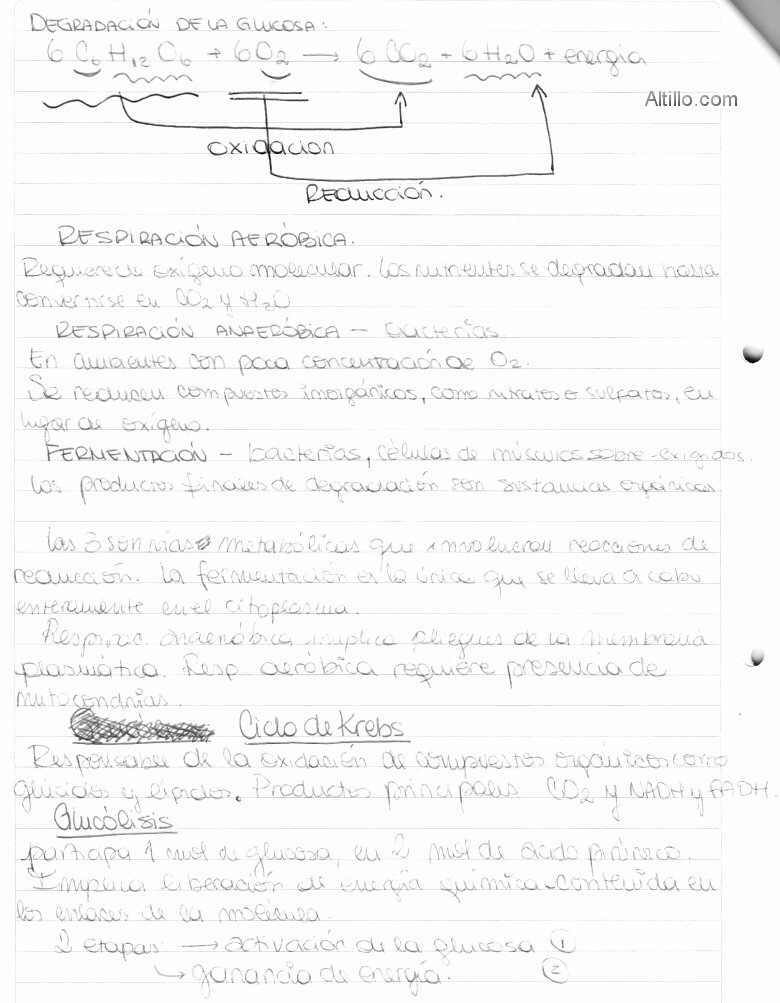 DEGRADACIÓN DE LA GLUCOSA:
6 C6 H12 O6 + 6O2 → 6 CO2 + 6H2O + energía
Altillo.com
OXIDACION
REDUCCIÓN.
RESPIRACIÓN AERÓBICA.
Requiere de oxígeno molecular. Los nutrientes se degradan hasta
convertirse en CO2 y H2O
RESPIRACIÓN ANAERÓBICA - bacterias
En ambientes con poca concentración de O2.
Se reducen compuestos inorgánicos, como nitratos o sulfatos, en
lugar de oxígeno.
FERMENTACIÓN - bacterias, células de músculos sobre-exigidos.
Los productos finales de degradación son sustancias orgánicas
Las 3 son vías metabólicas que involucran reacciones de
reducción. La fermentación es la única que se lleva a cabo
enteramente en el citoplasma.
Respirac. anaeróbica implica pliegues de la membrana
plasmática. Resp aeróbica requiere presencia de
mitocondrias.
Ciclo de Krebs
Responsable de la oxidación de compuestos orgánicos como
glúcidos y lípidos. Productos principales CO2 y NADH y FADH.
Glucólisis
participa 1 mol de glucosa, en 2 mol de ácido pirúvico.
Implica liberación de energía química contenida en
los enlaces de la molécula.
2 etapas → activación de la glucosa 1
↳ ganancia de energía. 2